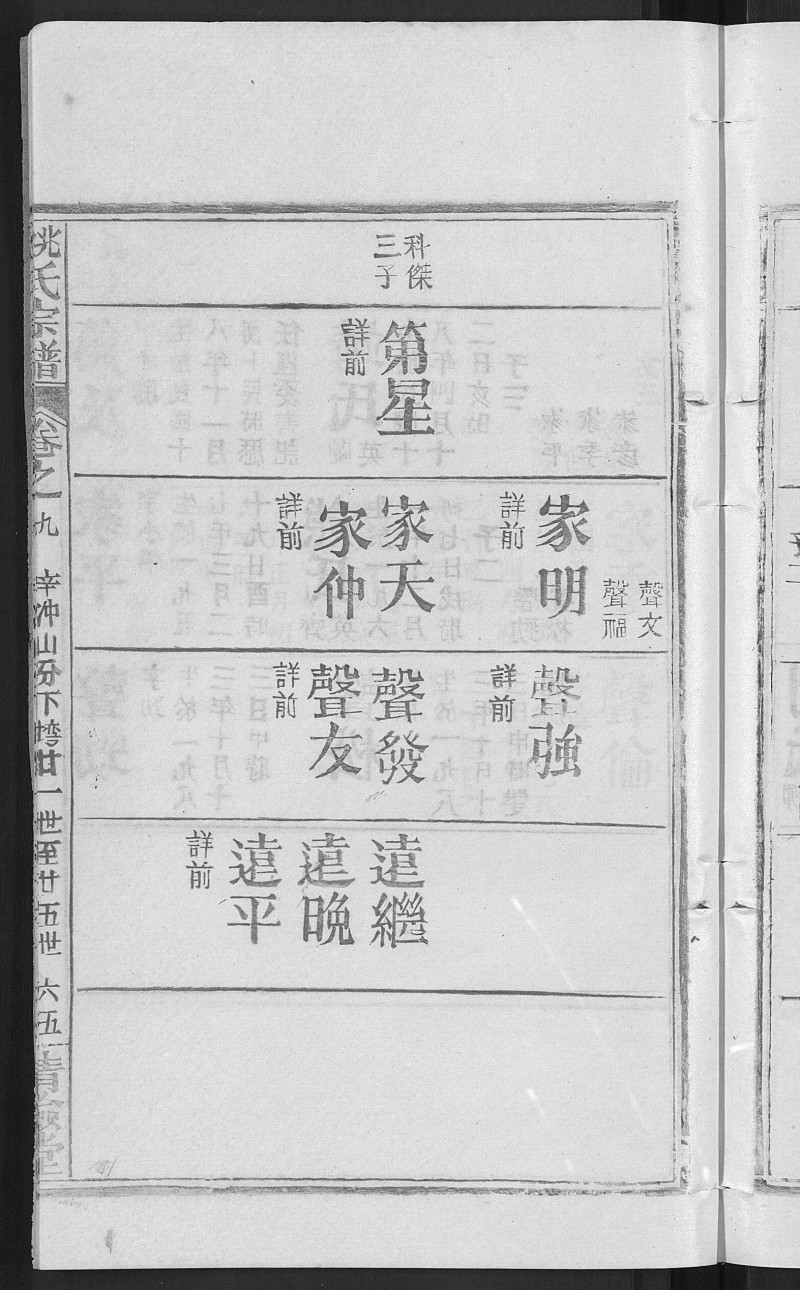 科傑
三子
第星
詳前
聲文
聲福
家明
詳前
家天
家仲
詳前
聲強
詳前
聲發
聲友
詳前
遠繼
遠晚
遠平
詳前
姚氏宗譜
卷之九
辛冲山分下塆廿一世至廿五世
六五